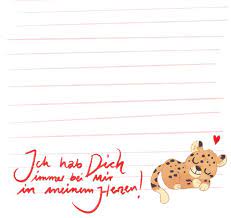 Ich hab Dich
immer bei Mir
in meinem Herzen!